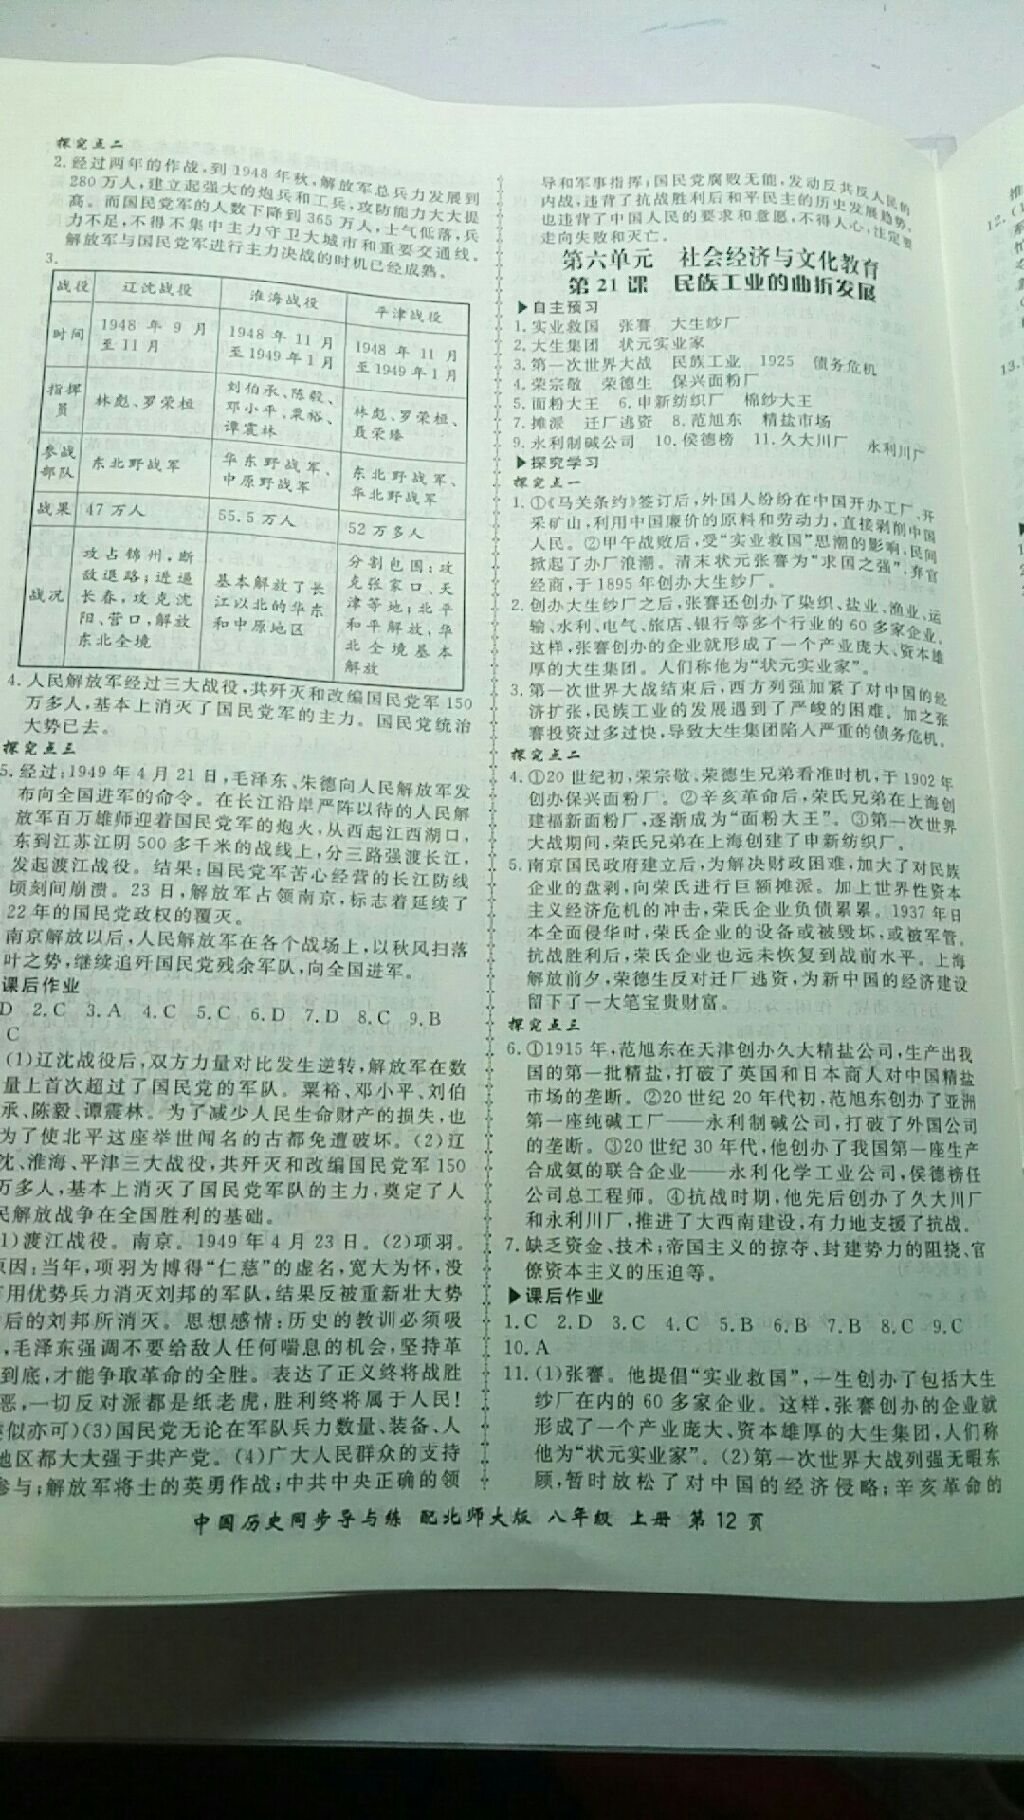 探究点二
2.经过两年的作战,到1948年秋,解放军总兵力发展到
280万人,建立起强大的炮兵和工兵,攻防能力大大提
高。而国民党军的人数下降到365万人,士气低落,兵
力不足,不得不集中主力守卫大城市和重要交通线。
解放军与国民党军进行主力决战的时机已经成熟。
3.
战役 辽沈战役 淮海战役 平津战役
时间 1948年9月至11月 1948年11月至1949年1月 1948年11月至1949年1月
指挥员 林彪、罗荣桓 刘伯承、陈毅、邓小平、粟裕、谭震林 林彪、罗荣桓、聂荣臻
参战部队 东北野战军 华东野战军、中原野战军 东北野战军、华北野战军
战果 47万人 55.5万人 52万多人
战况 攻占锦州,断敌退路;进逼长春,攻克沈阳、营口,解放东北全境 基本解放了长江以北的华东和中原地区 分割包围;攻克张家口、天津等地;北平和平解放,华北全境基本解放
4.人民解放军经过三大战役,共歼灭和改编国民党军150
万多人,基本上消灭了国民党军的主力。国民党统治
大势已去。
探究点三
5.经过:1949年4月21日,毛泽东、朱德向人民解放军发
布向全国进军的命令。在长江沿岸严阵以待的人民解
放军百万雄师迎着国民党军的炮火,从西起江西湖口,
东到江苏江阴500多千米的战线上,分三路强渡长江,
发起渡江战役。结果:国民党军苦心经营的长江防线
顷刻间崩溃。23日,解放军占领南京,标志着延续了
22年的国民党政权的覆灭。
南京解放以后,人民解放军在各个战场上,以秋风扫落
叶之势,继续追歼国民党残余军队,向全国进军。
课后作业
D 2.C 3.A 4.C 5.C 6.D 7.D 8.C 9.B
C
(1)辽沈战役后,双方力量对比发生逆转,解放军在数
量上首次超过了国民党的军队。粟裕、邓小平、刘伯
承、陈毅、谭震林。为了减少人民生命财产的损失,也
为了使北平这座举世闻名的古都免遭破坏。(2)辽
沈、淮海、平津三大战役,共歼灭和改编国民党军150
万多人,基本上消灭了国民党军队的主力,奠定了人
民解放战争在全国胜利的基础。
1)渡江战役。南京。1949年4月23日。(2)项羽。
原因:当年,项羽为博得“仁慈”的虚名,宽大为怀,没
有用优势兵力消灭刘邦的军队,结果反被重新壮大势
后的刘邦所消灭。思想感情:历史的教训必须吸
,毛泽东强调不要给敌人任何喘息的机会,坚持革
到底,才能争取革命的全胜。表达了正义终将战胜
恶,一切反对派都是纸老虎,胜利终将属于人民!
类似亦可)(3)国民党无论在军队兵力数量、装备、人
地区都大大强于共产党。(4)广大人民群众的支持
参与;解放军将士的英勇作战;中共中央正确的领
导和军事指挥;国民党腐败无能,发动反共反人民的
内战,违背了抗战胜利后和平民主的历史发展趋势,
也违背了中国人民的要求和意愿,不得人心,注定要
走向失败和灭亡。
第六单元 社会经济与文化教育
第21课 民族工业的曲折发展
▶自主预习
1.实业救国 张謇 大生纱厂
2.大生集团 状元实业家
3.第一次世界大战 民族工业 1925 债务危机
4.荣宗敬 荣德生 保兴面粉厂
5.面粉大王 6.申新纺织厂 棉纱大王
7.摊派 迁厂逃资 8.范旭东 精盐市场
9.永利制碱公司 10.侯德榜 11.久大川厂 永利川厂
▶探究学习
探究点一
1.①《马关条约》签订后,外国人纷纷在中国开办工厂、开
采矿山,利用中国廉价的原料和劳动力,直接剥削中国
人民。②甲午战败后,受“实业救国”思潮的影响,民间
掀起了办厂浪潮。清末状元张謇为“求国之强”,弃官
经商,于1895年创办大生纱厂。
2.创办大生纱厂之后,张謇还创办了染织、盐业、渔业、运
输、水利、电气、旅店、银行等多个行业的60多家企业。
这样,张謇创办的企业就形成了一个产业庞大、资本雄
厚的大生集团。人们称他为“状元实业家”。
3.第一次世界大战结束后,西方列强加紧了对中国的经
济扩张,民族工业的发展遇到了严峻的困难。加之张
謇投资过多过快,导致大生集团陷入严重的债务危机。
探究点二
4.①20世纪初,荣宗敬、荣德生兄弟看准时机,于1902年
创办保兴面粉厂。②辛亥革命后,荣氏兄弟在上海创
建福新面粉厂,逐渐成为“面粉大王”。③第一次世界
大战期间,荣氏兄弟在上海创建了申新纺织厂。
5.南京国民政府建立后,为解决财政困难,加大了对民族
企业的盘剥,向荣氏进行巨额摊派。加上世界性资本
主义经济危机的冲击,荣氏企业负债累累。1937年日
本全面侵华时,荣氏企业的设备或被毁坏,或被军管。
抗战胜利后,荣氏企业也远未恢复到战前水平。上海
解放前夕,荣德生反对迁厂逃资,为新中国的经济建设
留下了一大笔宝贵财富。
探究点三
6.①1915年,范旭东在天津创办久大精盐公司,生产出我
国的第一批精盐,打破了英国和日本商人对中国精盐
市场的垄断。②20世纪20年代初,范旭东创办了亚洲
第一座纯碱工厂——永利制碱公司,打破了外国公司
的垄断。③20世纪30年代,他创办了我国第一座生产
合成氨的联合企业——永利化学工业公司,侯德榜任
公司总工程师。④抗战时期,他先后创办了久大川厂
和永利川厂,推进了大西南建设,有力地支援了抗战。
7.缺乏资金、技术;帝国主义的掠夺、封建势力的阻挠、官
僚资本主义的压迫等。
▶课后作业
1.C 2.D 3.C 4.C 5.B 6.B 7.B 8.C 9.C
10.A
11.(1)张謇。他提倡“实业救国”,一生创办了包括大生
纱厂在内的60多家企业。这样,张謇创办的企业就
形成了一个产业庞大、资本雄厚的大生集团,人们称
他为“状元实业家”。(2)第一次世界大战列强无暇东
顾,暂时放松了对中国的经济侵略;辛亥革命的
12.(1
13.
中国历史同步导与练 配北师大版 八年级 上册 第12页